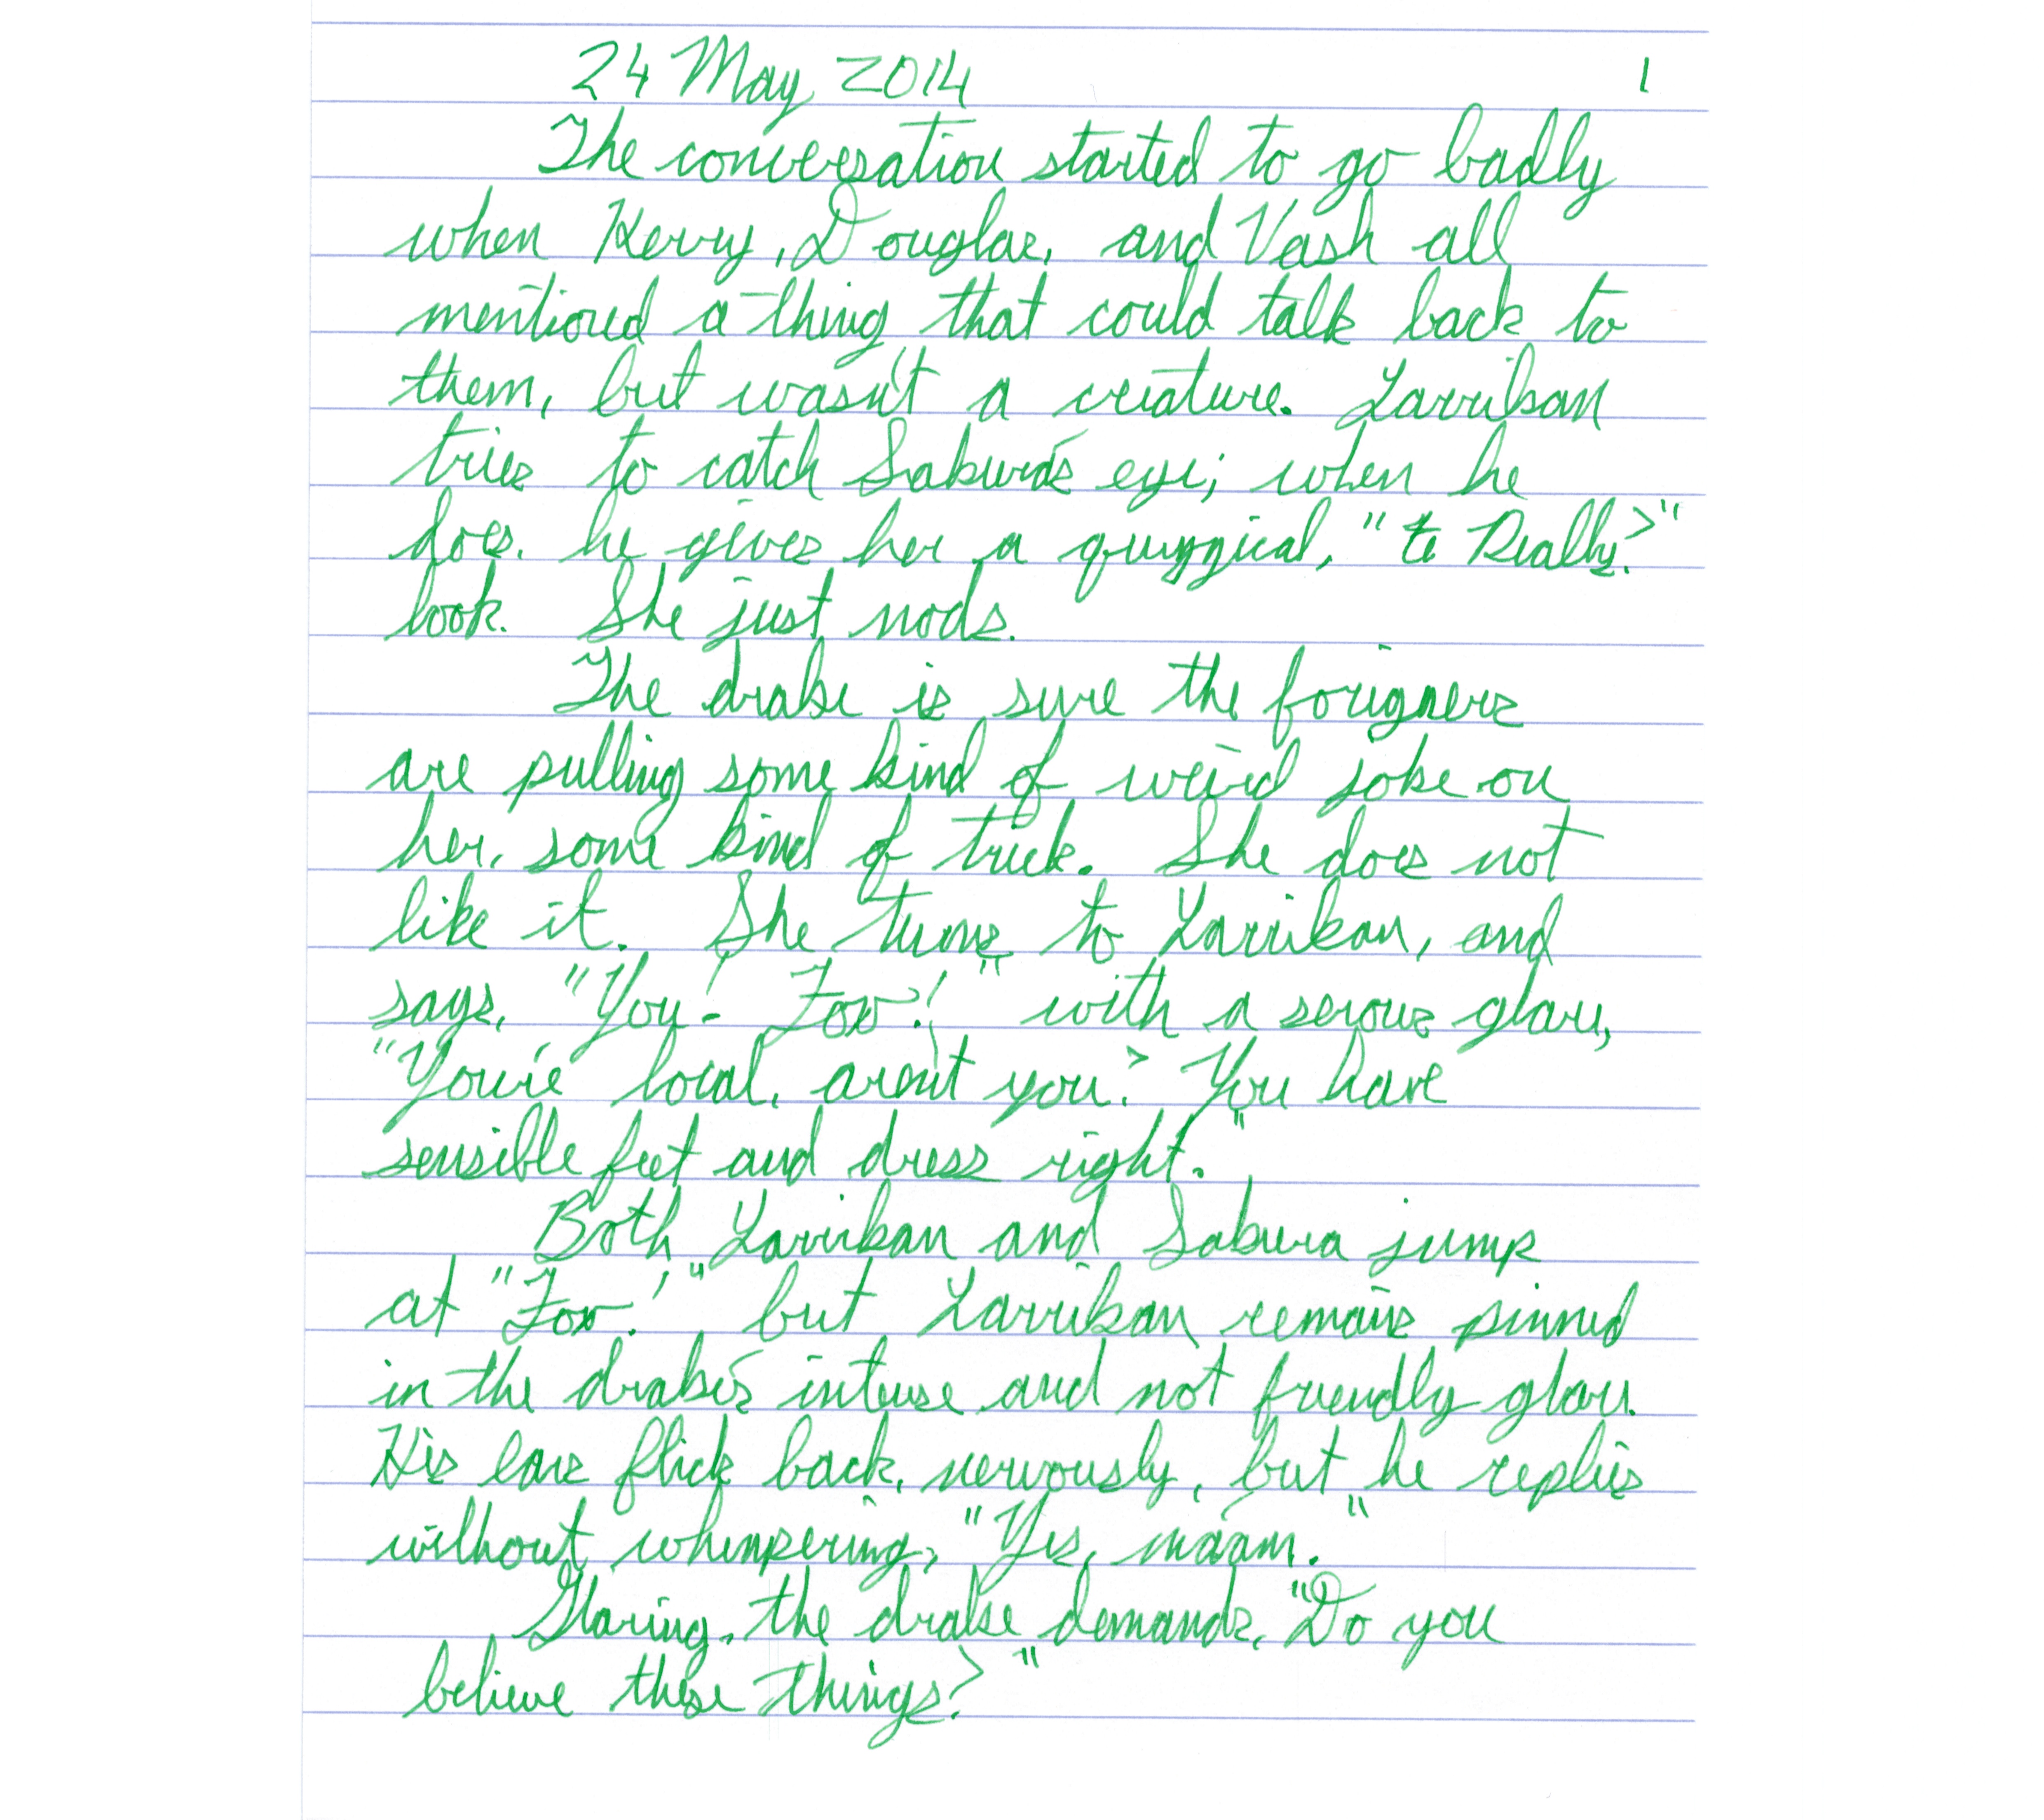 24 May 2014 1
The conversation started to go badly
when Kerry, Douglas, and Vash all
mentioned a thing that could talk back to
them, but wasn't a creature. Larrikan
tries to catch Sakura's eye; when he
does, he gives her a quizzical, "Really?"
look. She just nods.
The drake is sure the foreigners
are pulling some kind of weird joke on
her, some kind of trick. She does not
like it. She turns to Larrikan, and
says, "You! Fox!" with a serous glare,
"You're local, aren't you? You have
sensible feet and dress right."
Both Larrikan and Sakura jump
at "Fox!" but Larrikan remains pinned
in the drake's intense and not friendly glare.
His ears flick back, nervously, but he replies
without whimpering, "Yes, ma'am."
Glaring, the drake demands, "Do you
believe these things?"